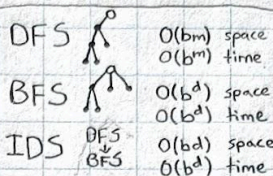 DFS
O(bm) space
O(b^m) time
BFS
O(b^d) space
O(b^d) time
IDS
DFS
↓
BFS
O(bd) space
O(b^d) time